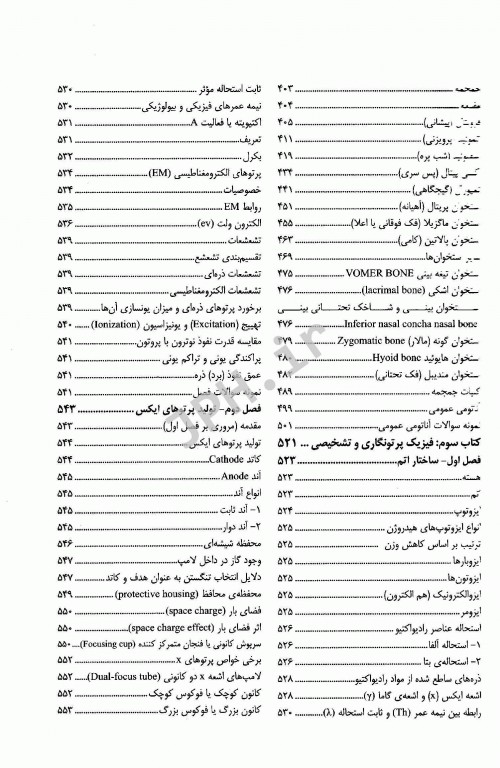 جمجمه ... ۴۰۳
مقدمه ... ۴۰۴
فرونتال (پیشانی) ... ۴۰۵
اتموئید (پرویزنی) ... ۴۱۱
اسفنوئید (شب پره) ... ۴۱۹
اکسی پیتال (پس سری) ... ۴۳۴
تمپورال (گیجگاهی) ... ۴۴۱
ستخوان پریتال (آهیانه) ... ۴۵۱
ستخوان ماگزیلا (فک فوقانی یا اعلا) ... ۴۵۵
ستخوان پالاتین (کامی) ... ۴۶۳
سایر ستخوان‌ها ... ۴۶۹
ستخوان تیغه بینی VOMER BONE ... ۴۷۵
ستخوان اشکی (lacrimal bone) ... ۴۷۶
ستخوان بینی و شاخک تحتانی بینی
Inferior nasal concha nasal bone ... ۴۷۶
ستخوان گونه (مالار) Zygomatic bone ... ۴۷۹
ستخوان هایوئید Hyoid bone ... ۴۸۰
ستخوان مندیبل (فک تحتانی) ... ۴۸۲
کلیات جمجمه ... ۴۸۹
آناتومی عمومی ... ۴۹۹
نمونه سوالات آناتومی عمومی ... ۵۰۱
کتاب سوم: فیزیک پرتونگاری و تشخیصی ... ۵۲۱
فصل اول- ساختار اتم ... ۵۲۳
هسته ... ۵۲۳
اتم ... ۵۲۳
ایزوتوپ ... ۵۲۴
انواع ایزوتوپ‌های هیدروژن ... ۵۲۵
ترتیب بر اساس کاهش وزن ... ۵۲۵
ایزوبارها ... ۵۲۵
ایزوتون‌ها ... ۵۲۵
ایزوالکترونیک (هم الکترون) ... ۵۲۵
ایزومر ... ۵۲۵
استحاله عناصر رادیواکتیو ... ۵۲۶
۱- استحاله آلفا ... ۵۲۶
۲- استحاله‌ی بتا ... ۵۲۶
ذره‌های ساطع شده از مواد رادیواکتیو ... ۵۲۸
اشعه ایکس (x) و اشعه‌ی گاما (γ) ... ۵۲۸
رابطه بین نیمه عمر (Th) و ثابت استحاله (λ) ... ۵۳۰
ثابت استحاله مؤثر ... ۵۳۰
نیمه عمرهای فیزیکی و بیولوژیکی ... ۵۳۰
اکتیویته یا فعالیت A ... ۵۳۱
تعریف ... ۵۳۱
بکرل ... ۵۳۲
پرتوهای الکترومغناطیسی (EM) ... ۵۳۴
خصوصیات ... ۵۳۴
روابط EM ... ۵۳۵
الکترون ولت (ev) ... ۵۳۶
تشعشعات ... ۵۳۹
تقسیم‌بندی تشعشع ... ۵۳۹
تشعشعات ذره‌ای ... ۵۳۹
تشعشعات الکترومغناطیسی ... ۵۳۹
برخورد پرتوهای ذره‌ای و میزان یونسازی آن‌ها ... ۵۳۹
تهییج (Excitation) و یونیزاسیون (Ionization) ... ۵۴۰
مقایسه قدرت نفوذ نوترون با پروتون ... ۵۴۱
پراکندگی یونی و تراکم یونی ... ۵۴۱
عمق نفوذ (برد) ذره ... ۵۴۱
نمونه سوالات فصل ... ۵۴۱
فصل دوم- تولید پرتوهای ایکس ... ۵۴۳
مقدمه (مروری بر فصل اول) ... ۵۴۳
تولید پرتوهای ایکس ... ۵۴۴
کاتد Cathode ... ۵۴۴
آند Anode ... ۵۴۵
انواع آند ... ۵۴۵
۱- آند ثابت ... ۵۴۵
۲- آند دوار ... ۵۴۵
محفظه شیشه‌ای ... ۵۴۶
وجود گاز در داخل لامپ ... ۵۴۷
دلایل انتخاب تنگستن به عنوان هدف و کاتد ... ۵۴۷
محفظه‌ی محافظ (protective housing) ... ۵۴۹
فضای بار (space charge) ... ۵۵۰
اثر فضای بار (space charge effect) ... ۵۵۰
سرپوش کانونی یا فنجان متمرکز کننده (Focusing cup) ... ۵۵۰
برخی خواص پرتوهای x ... ۵۵۲
لامپ‌های اشعه x دو کانونی (Dual-focus tube) ... ۵۵۲
کانون کوچک یا فوکوس کوچک ... ۵۵۲
کانون بزرگ یا فوکوس بزرگ ... ۵۵۳
JPH.ir